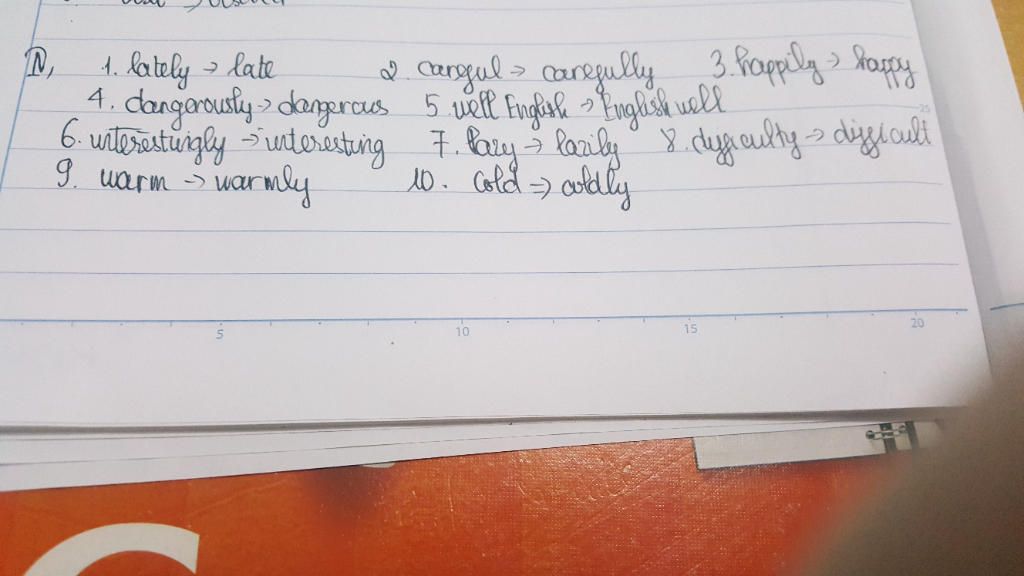 IV, 1. lately → late 2. careful → carefully 3. happily → happy
4. dangerously → dangerous 5. well English → English well
6. interestingly → interesting 7. lazy → lazily 8. difficulty → difficult
9. warm → warmly 10. cold → coldly
5 10 15 20
25
C